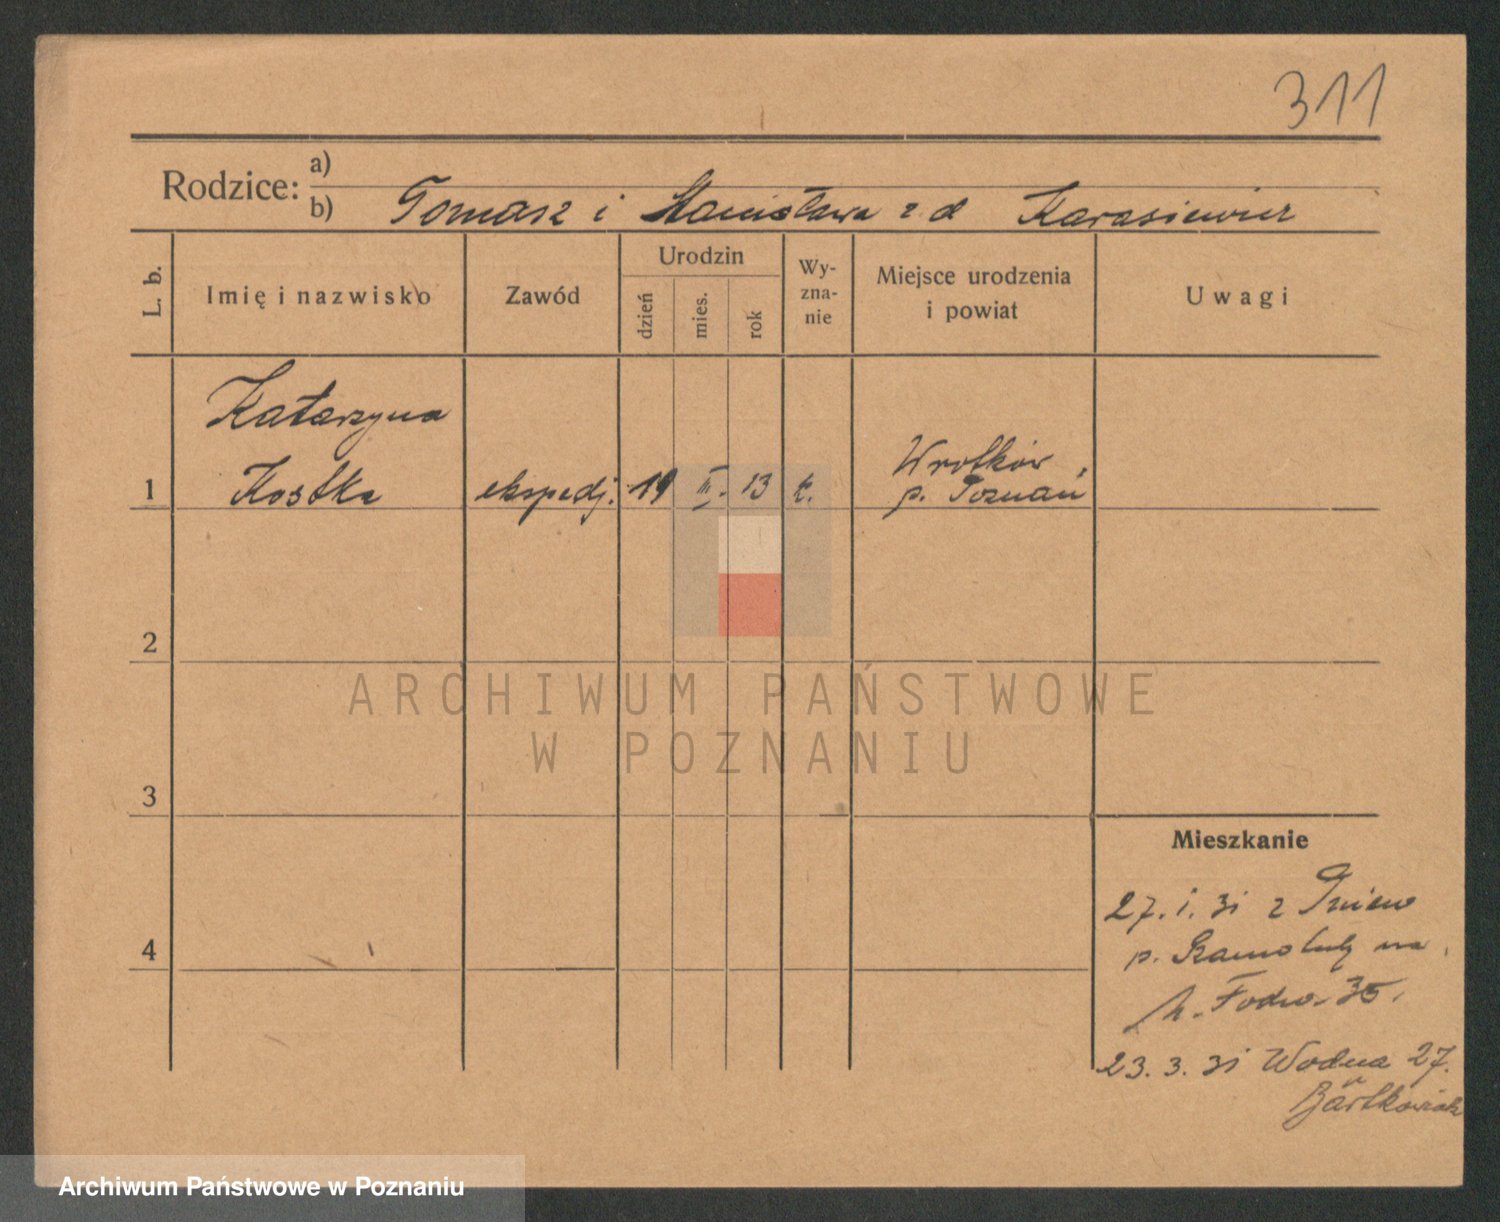 311
Rodzice: a)
b) Tomasz i Stanisława z d Karasiewicz
L. b.
Imię i nazwisko
Zawód
Urodzin
dzień
mies.
rok
Wy-
zna-
nie
Miejsce urodzenia
i powiat
Uwagi
Katarzyna
1 Kostka ekspedj. 19 III. 13 k.
Wrotków,
p. Poznań
2
3
4
Mieszkanie
27. 1. 31 z Pniew
p. Szamotuły na
23. 3. 31 Wodna 27.
Bartkowiak
ARCHIWUM PAŃSTWOWE
W POZNANIU
Archiwum Państwowe w Poznaniu